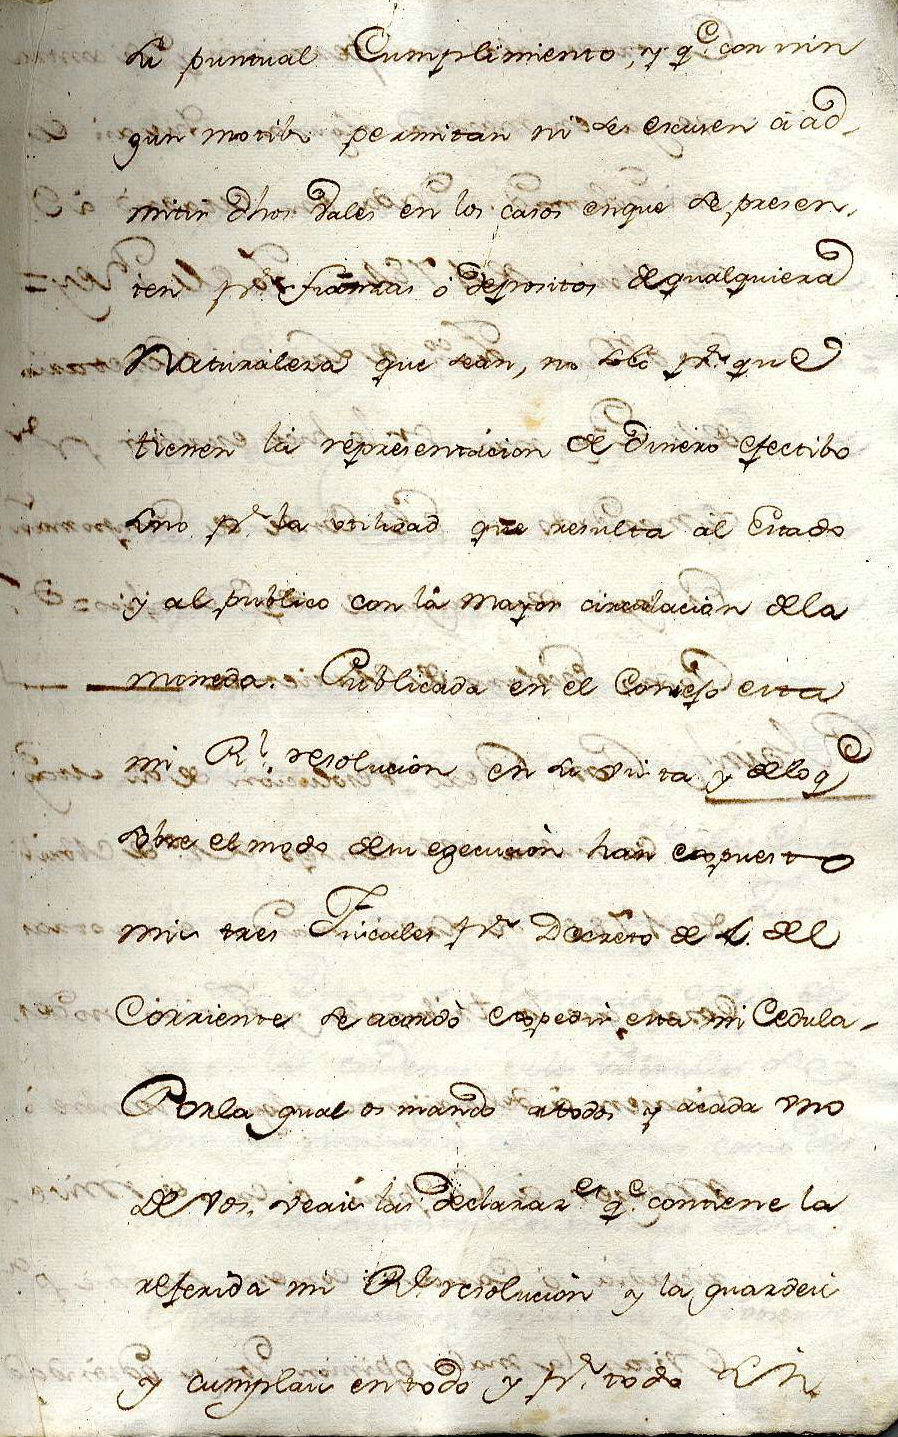 su puntual Cumplimiento, y q.e con nin
gun motibo permitan ni se escusen á ad-
mitir dhos Vales en los casos enque se presen-
ten p.r fianzas ó depositos de qualquiera
Naturaleza que sean, no solo p.r que
tienen la representacion de Dinero efectibo
sino p.r la utilidad que resulta al Estado
y al publico con la mayor circulacion dela
moneda. Publicada en el Consejo esta
mi R.l resolucion en su vista y delo q.e
sobre el modo desu egecución han expuesto
mis tres Fiscales p.r Decreto de 4. del
Corriente se acordó expedir esta mi Cedula-
Porla qual os mando átodos y ácada uno
de Vos, veais las declarar.es q.e contiene la
referida mi R.l resolución y la guardeis
y cumplais en todo y p.r todo sin